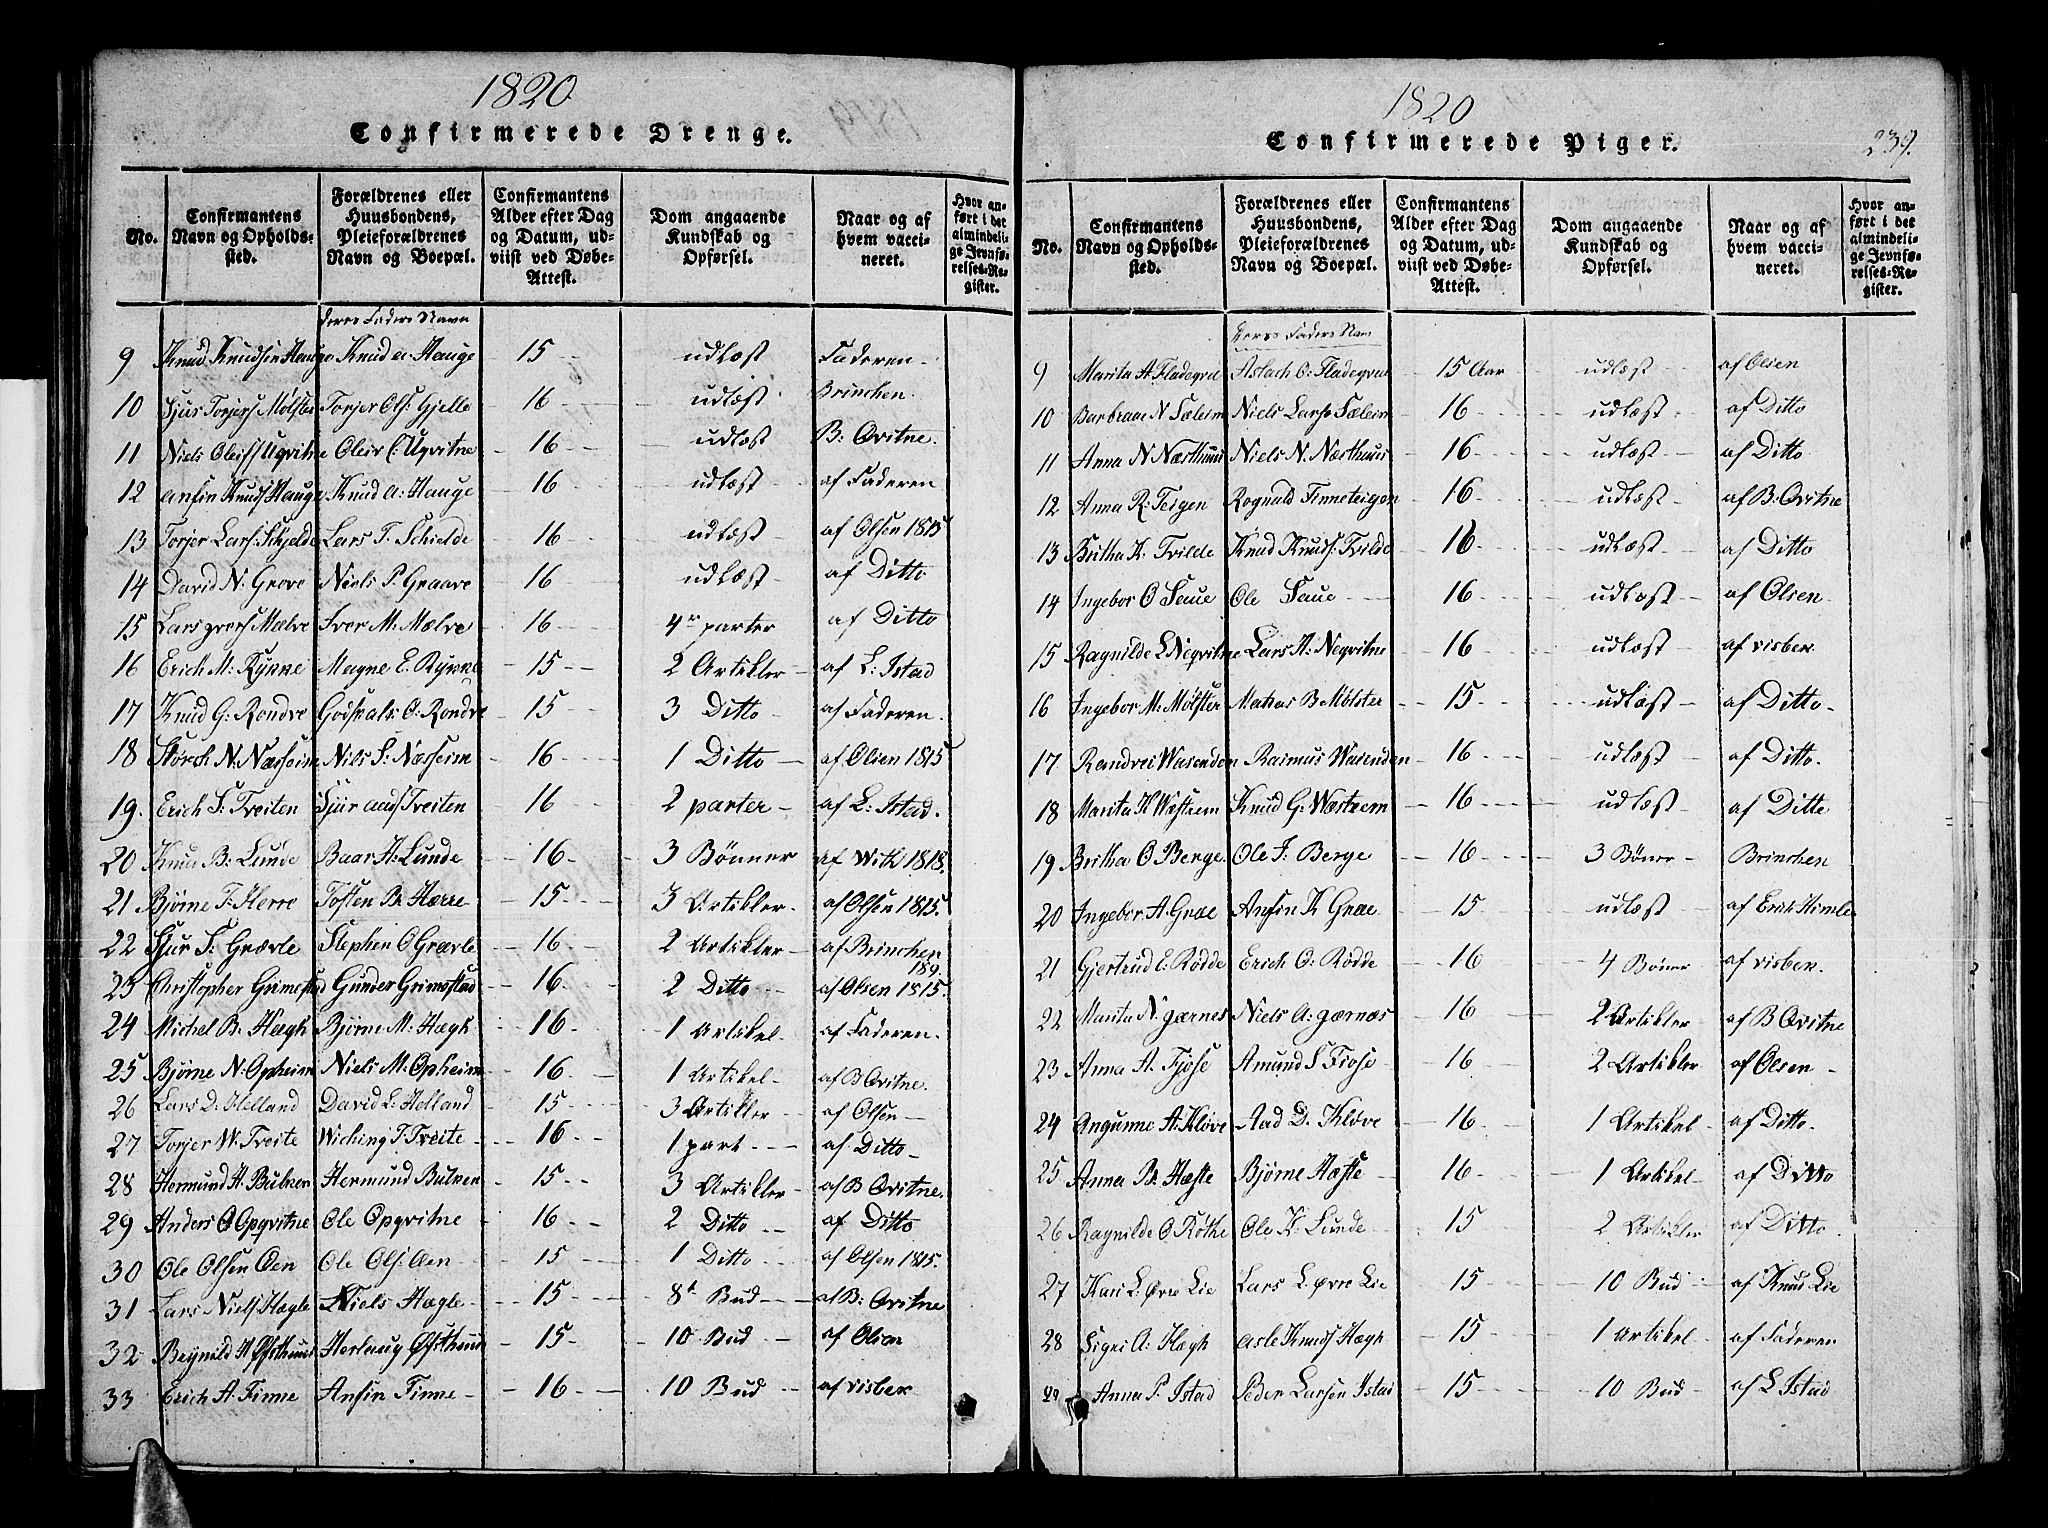 1820
Confirmerede Drenge.
No. | Confirmantens Navn og Opholdssted. | Forældrenes eller Huusbondens, Pleieforældrenes Navn og Boepæl. | Confirmantens Alder efter Dag og Datum, udviist ved Døbe-Attest. | Dom angaaende Kundskab og Opførsel. | Naar og af hvem vaccineret. | Hvor anført i det almindelige Jevnførelses-Register.
deres Faders Navn
9 Knud Knudsen Hauge | Knud A: Hauge | 15 | udlæst | Faderen
10 Sjur Torjers Mølster | Torjer Ols: Gjelle | 16 | udlæst | Brinchen.
11 Niels Oleifs Uqvitne | Oleiv C: Uqvitne | 16 | udlæst | B: Qvitne.
12 Anfin Knuds Hauge | Knud A: Hauge | 16 | udlæst | af Faderen
13 Torjer Lars: Skjelde | Lars T. Schielde | 16 | udlæst | af Olsen 1815
14 David N: Grove | Niels P. Graave | 16 | udlæst | af Ditto
15 Lars Ivers Mælve | Iver M: Mælve | 16 | 4re parter | af Ditto
16 Erich M: Rynne | Magne E. Rynne | 15 | 2 Artikler | af L: Istad
17 Knud G: Rondve | Godskalk O: Rondve | 15 | 3 Ditto | af Faderen.
18 Størch N: Næsseim | Nils S: Næsseim | 16 | 1 Ditto | af Olsen 1815
19. Erich S: Tveiten | Sjur Aus Tveiten | 16 | 2 parter | af L: Istad.
20 Knud B: Lunde | Baar H: Lunde | 16 | 3 Bønner | af With 1818.
21 Bjørne T: Herre | Tosten B: Hærre | 15 | 3 Artikler. | af Olsen 1815.
22 Sjur S: Grævle | Stephen O Grævle | 16 | 2 Artikler | af Brinchen 189.
23 Christopher Grimestad | Gunder Grimestad | 16 | 2 Ditto | af Olsen 1815.
24 Michel B. Hægh | Bjørne M: Hægh | 16 | 1 Artikel | af Faderen.
25 Bjørne N: Opheim | Niels M: Opheim | 16 | 1 Artikel | af B Qvitne.
26 Lars D: Helland | David L: Helland | 15 | 3 Artikler | af Olsen
27 Torjer W. Tveite | Wiching T. Tveite | 16 | 1 part | af Ditto
28 Hermund H. Bulken | Hermund Bulken | 15 | 3 Artikler | af B Qvitne.
29 Anders O Opqvitne | Ole Opqvitne | 16 | 2 Ditto | af Ditto
30 Ole Olsen Øen | Ole Ols: Øen | 15 | 1 Ditto | af Olsen 1815.
31 Lars Niels Hægle | Niels Hægle | 15 | 8t Bud | af B: Qvitne
32 Brynild H Østhuus | Herlaug Østhuus | 15 | 10 Bud | af Olsen
33 Erich A. Finne | Anfin Finne | 16 | 10 Bud | af visber
1820
Confirmerede Piger.
239.
No. | Confirmantens Navn og Opholdssted. | Forældrenes eller Huusbondens, Pleieforældrenes Navn og Boepæl. | Confirmantens Alder efter Dag og Datum, udviist ved Døbe-Attest. | Dom angaaende Kundskab og Opførsel. | Naar og af hvem vaccineret. | Hvor anført i det almindelige Jevnførelses-Register.
deres Faders Nam
9 Marita A Fladeqval | Aslach O: Fladeqval | 15 Aar | udlæst | af Olsen
10 Barbraae N Sæleim | Niels Larss Sæleim | 16 | udlæst | af Ditto
11 Anna N Næsthuus | Niels N. Næsthuus | 16 | udlæst | af Ditto
12 Anna R: Teigen | Rognald Finneteigen | 16 | udlæst | af B: Qvitne
13 Britha K: Tvilde | Knud Knuds: Tvilde | 16 | udlæst | af Ditto
14 Ingebor O Saue | Ole Saue | 16 | udlæst | af Olsen
15 Ragnilde L Neqvitne | Lars A: Neqvitne | 16 | udlæst | af visber.
16 Ingebor M: Mølster | Mathias B Mølster | 15 | udlæst | af Ditto.
17 Randvei Wasenden | Rasmus Wasenden | 16 | udlæst | af Ditto.
18 Marita K Wæstrem | Knud G: Wæstrem | 16 | udlæst | af Ditto
19 Britha O Berge. | Ole J. Berge | 16 | 3 Bøner | Brinchen
20 Ingebor A. Græe | Anfin K Græe | 15 | udlæst | af Erich Himle
21 Gjertrud E: Rødde | Erich O: Rødde | 16 | 4 Bøner | af visber.
22 Marita N. Jærnes | Niels A. Jærnæs | 16 | 2 Artikler | af B Qvitne
23 Anna A. Fjøse | Amund S Fiose | 16 | 2 Artikler | af Olsen
24 Angunne A. Kløve | Aad D. Kløve | 16 | 1 Artikel | af Ditto.
25 Anna B. Hæste | Bjørne Hæste | 16 | 1 Artikel | af Ditto
26 Ragnilde O Røthe | Ole K: Lunde | 15 | 2 Artikler | af Ditto.
27 Kari L: Øvre Lie | Lars L. Øvre Lie | 15 | 10 Bud | af Knud Lie
28 Sigri A: Hægh | Asle Knuds Hægh | 15 | 1 Artikel | af Faderen
29 Anna P. Istad | Peder Larsen Istad | 15 | 10 Bud | af L Istad